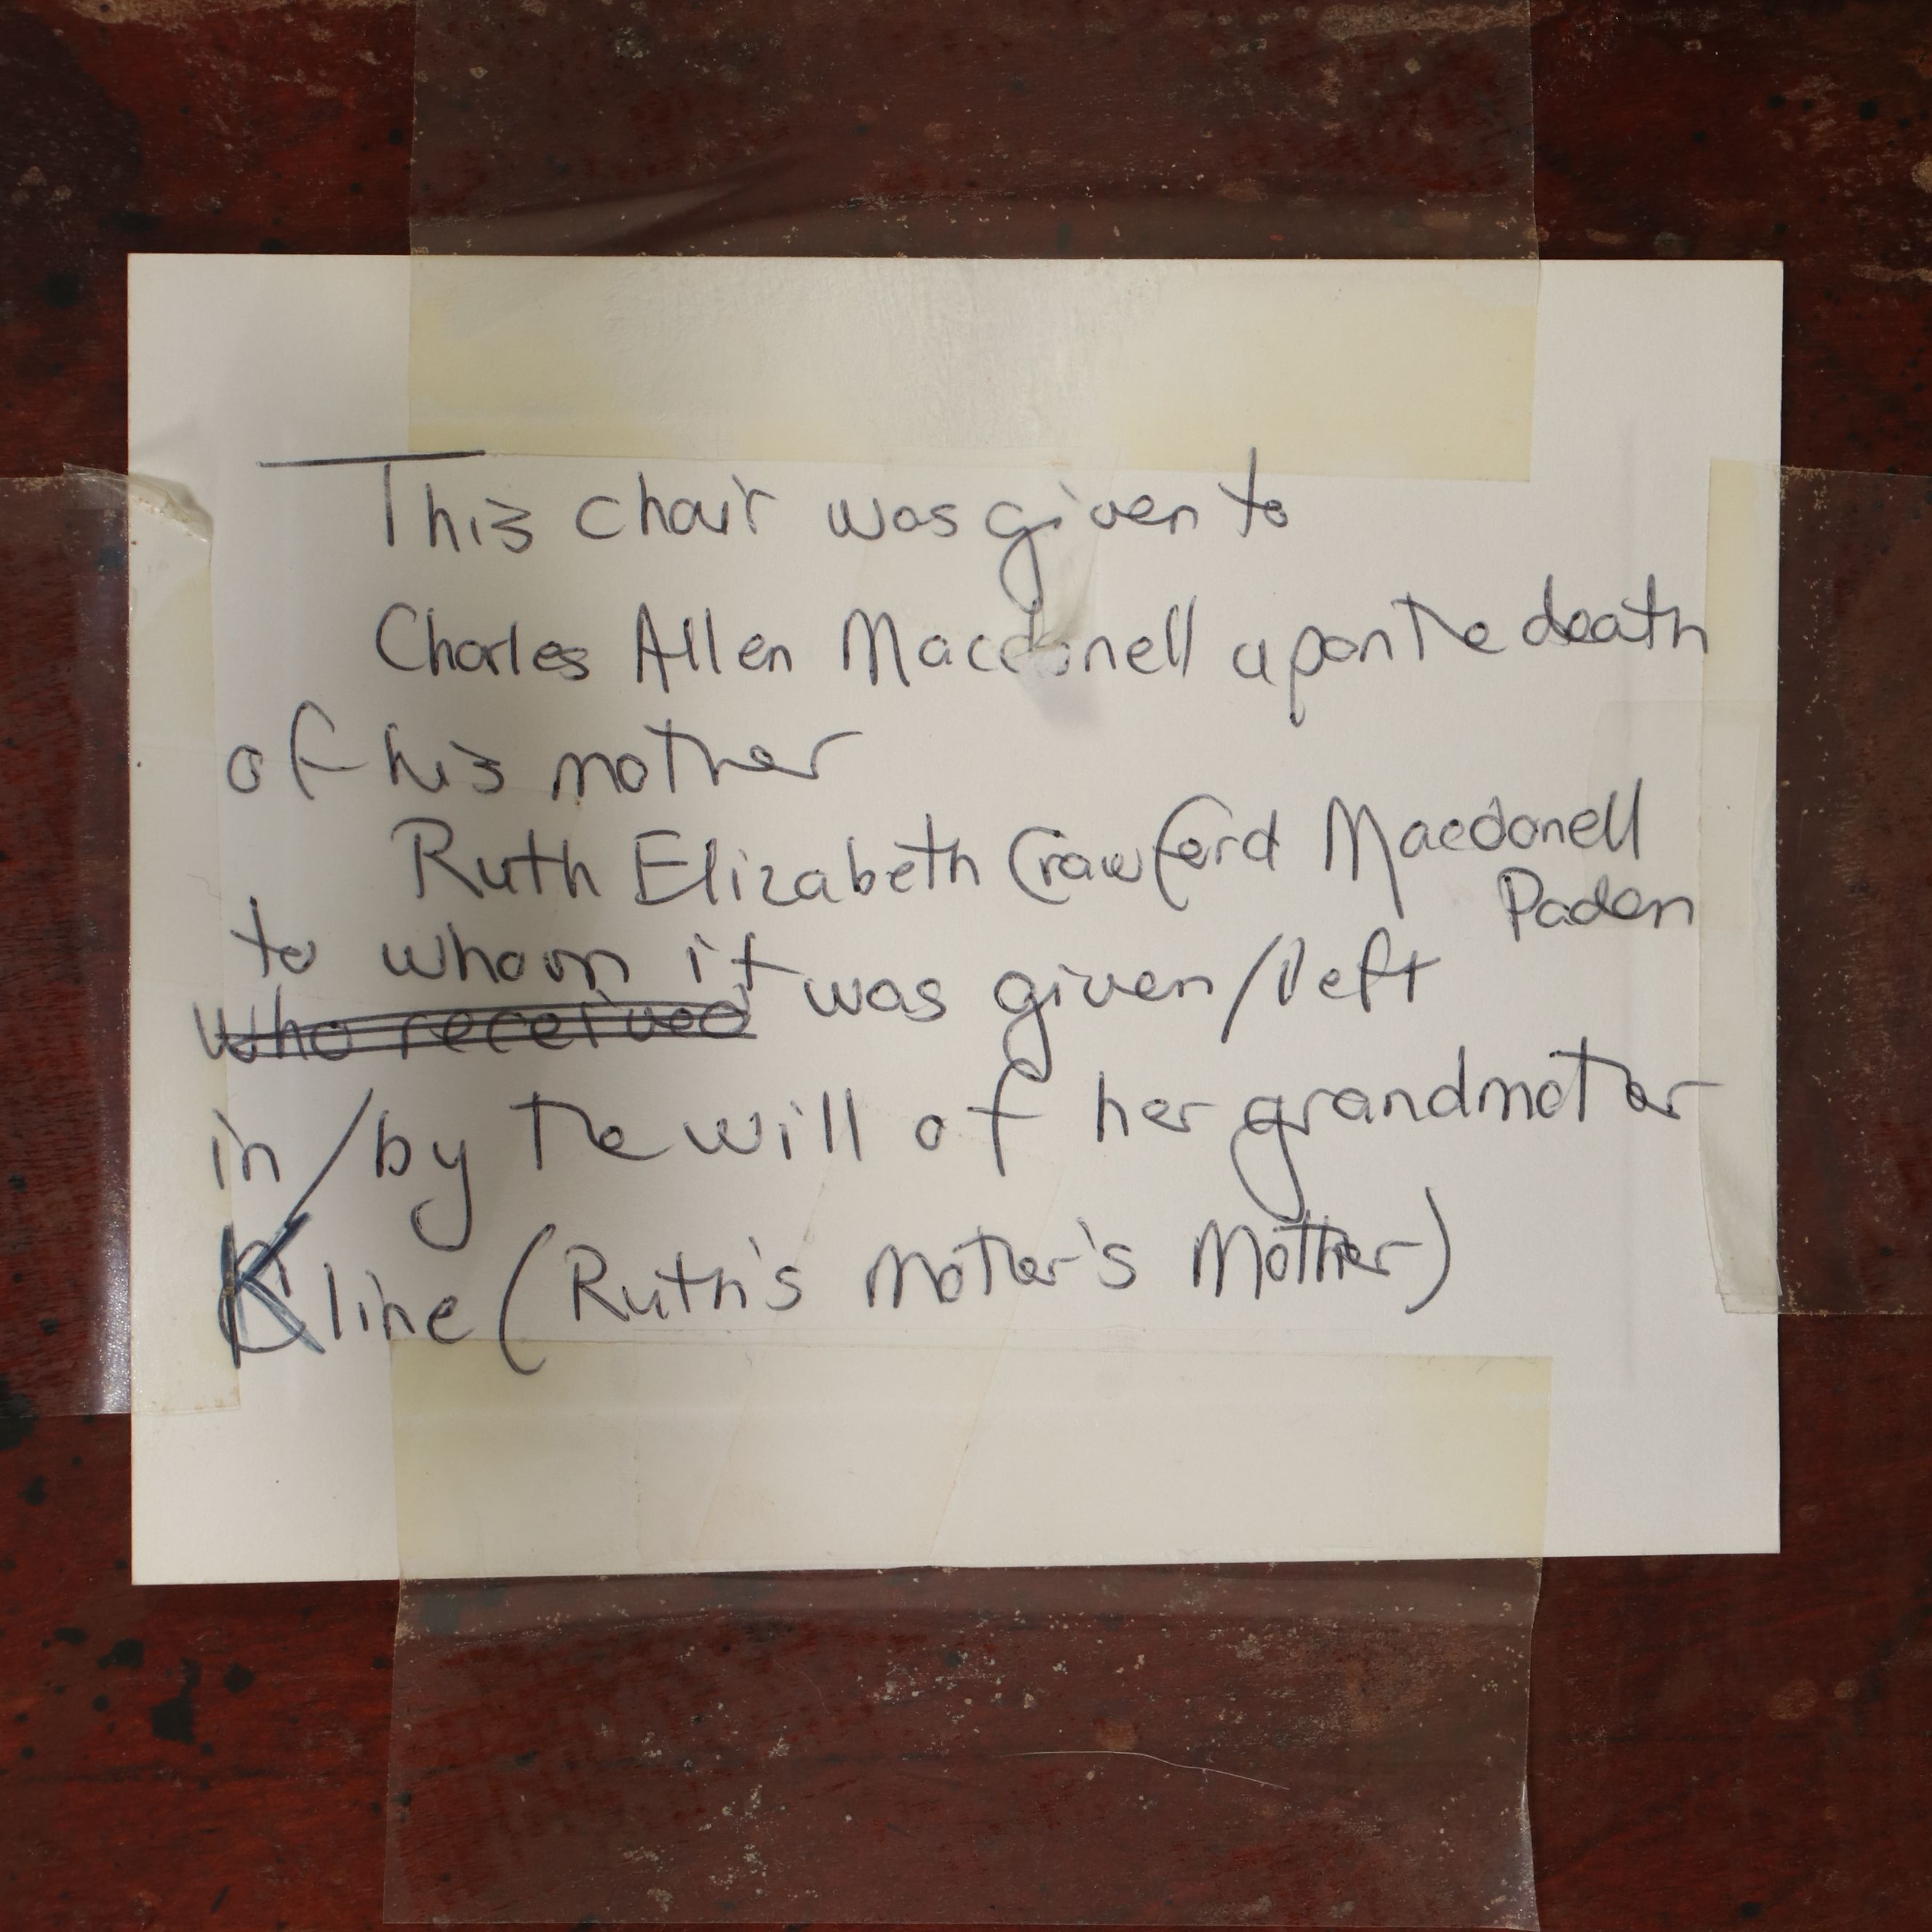 This chair was given to
Charles Allen Macdonell upon the death
of his mother
Ruth Elizabeth Crawford Macdonell
Paden
to whom it was given/left
who received
in/by the will of her grandmother
Kline (Ruth's mother's Mother)